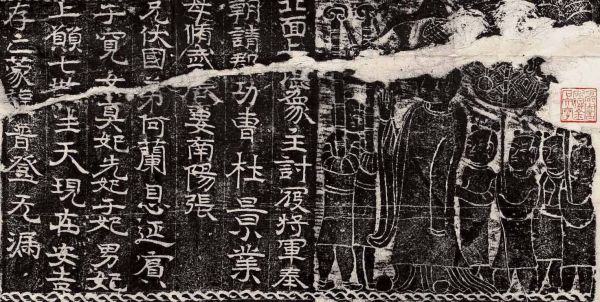 北面上像主討將軍奉
朝請郡功曹杜景業
母脩武婁南陽張
兄伏國弟何蘭息延賓
子寬女真妃先妃子妃男妃
上願七世生天現在安吉
存亡蒙普登无漏